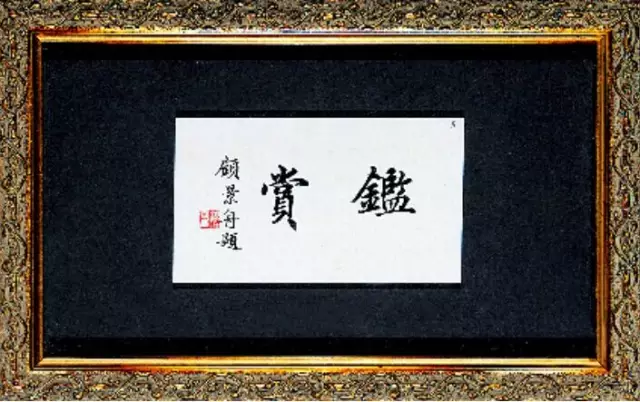 鑑賞
顧景舟題